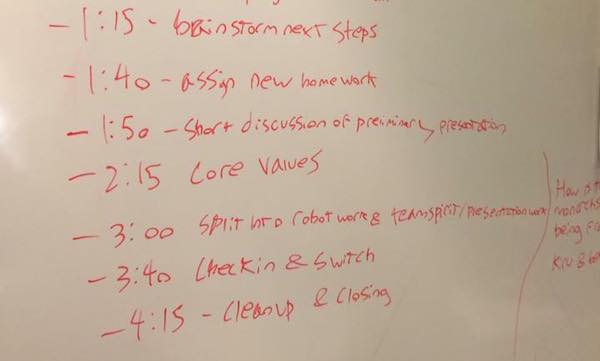 - 1:15 - brainstorm next steps
- 1:40 - assign new homework
- 1:50 - short discussion of preliminary presentation
- 2:15 Core Values
- 3:00 split into robot work & team spirit/presentation work
- 3:40 Checkin & Switch
- 4:15 - Cleanup & Closing
How
being